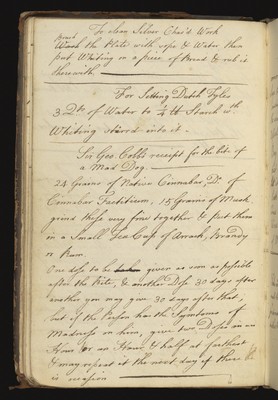 To clean Silver Chas'd Work
Wash the Plate with sope & Water then
put Whiting on a piece of Bread & rub it
therewith
For Setting Dutch Tyles
3 Qts of Water to ¼ lb Starch wth
Whiting stirred into it.
Sir Geo. Cobb's receipt for the bite of
a Mad Dog.
24 Grains of Native Cinnabar, Do. of
Cinnabar Factitium, 15 Grains of Musk
grind these very fine together & put them
in a Small Tea Cup of Arrack, Brandy
or Rum.
One dose to be given as soon as possible
after the Bite, & another Dose 30 days after
another you may give 30 days after that,
but if the Person has the Symptoms of
Madness on him, give two Doses in an
Hour or an Hour & half at furthest
& may repeat it the next day if there
is occasion